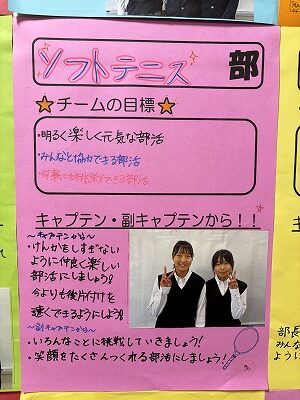 ソフトテニス 部
☆チームの目標☆
・明るく楽しく元気な部活
・みんなと協力できる部活
・何事にも挑戦できる部活
キャプテン・副キャプテンから！！
〜キャプテンから〜
・けんかをしすぎない
ように仲良く楽しい
部活にしましょう!
今よりも後片付けを
速くできるようにしよう!
〜副キャプテンから〜
・いろんなことに挑戦していきましょう!
・笑顔をたくさんつくれる部活にしましょう!
部長
みんな
ように